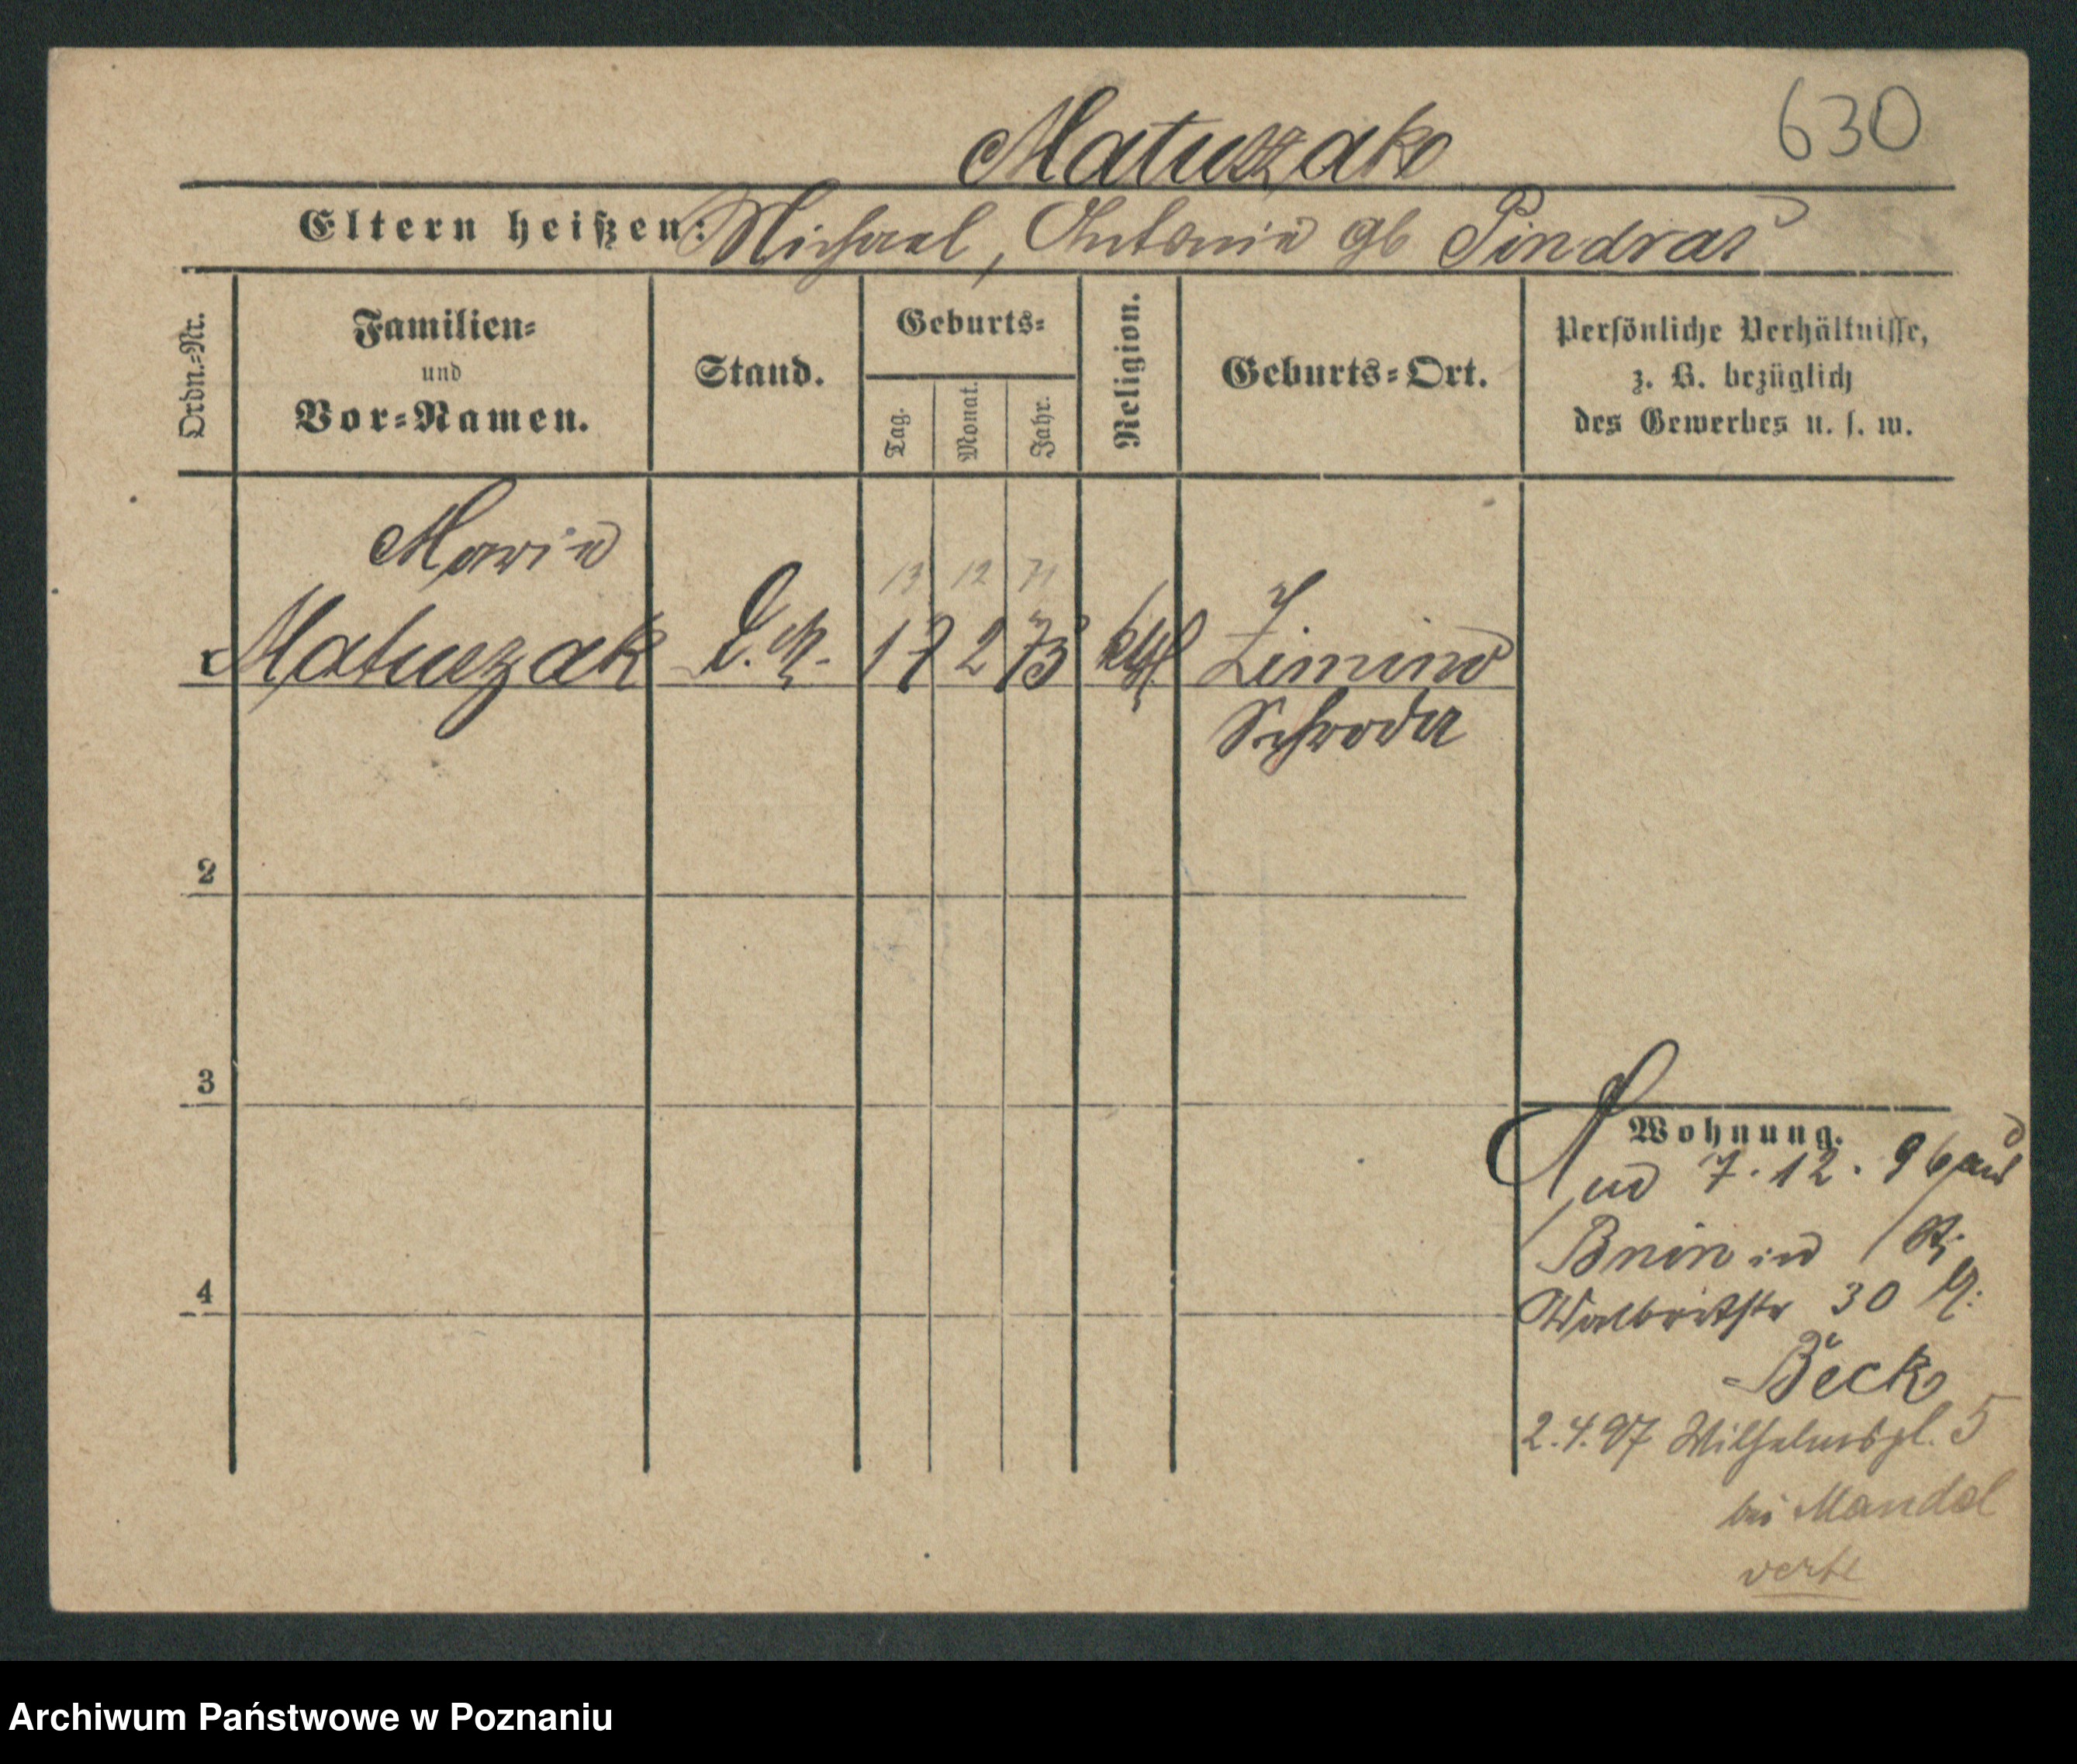 630
Matuszak
Eltern heißen: Michael, Antonie gb Pindras
Ordn.=Nr.
Familien=
und
Vor=Namen.
Stand.
Geburts=
Tag.
Monat.
Jahr.
Religion.
Geburts=Ort.
Persönliche Verhältnisse,
z. B. bezüglich
des Gewerbes u. s. w.
Maria
13 12 71
Matuszak D. M. 17 2 73 kath Zimino
Schroda
2
3
4
Wohnung.
7. 12. 96 aus
Bnin in
30
Beck
2.4.97 Wilhelmspl. 5
bei Mandel
verte
Archiwum Państwowe w Poznaniu